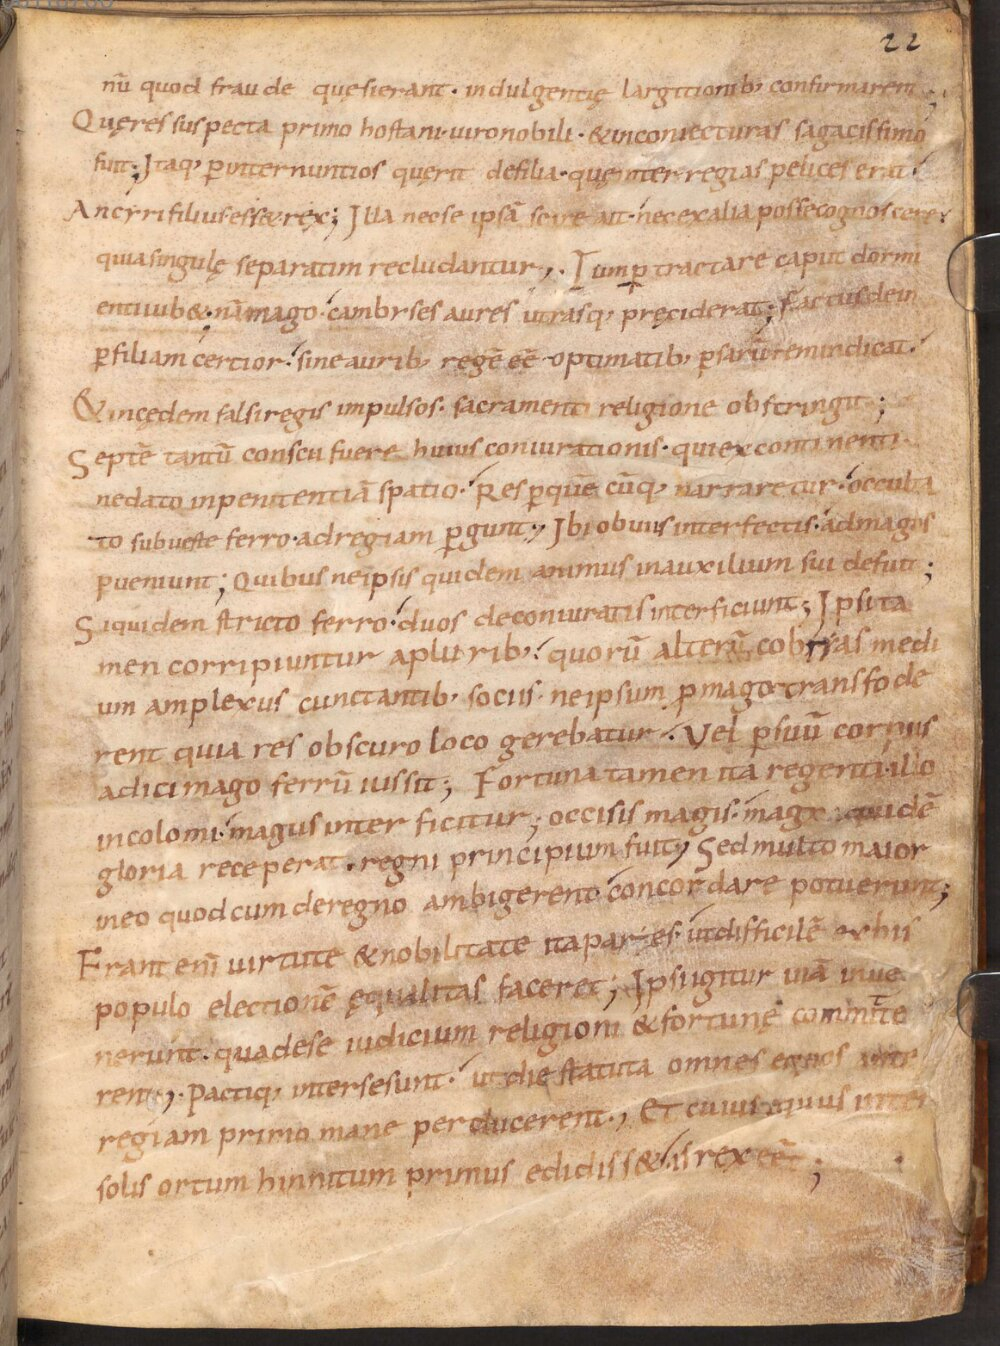 22
nū quod fraude quęsierant· indulgentię largitionib; confirmarent;
Quę res suspecta primo hostani· uiro nobili· & in coniecturas sagacissimo
fuit; Itaq; ꝑ internuntios querit de filia· quę inter regias pelices erat·
An cyri filius esset rex; Illa nec se ipsā scire ait· nec ex alia posse cognoscere·
quia singulę separatim recludantur,· Tum ꝑtractare caput dormi
enti iub&; nā mago· cambyses aures utrasq; pręciderat; factus dein
ꝑ filiam certior· sine aurib; regē eē optimatib; ꝑsarū rem indicat·
& in cędem falsi regis impulsos· sacramenti religione obstringit;
Septē tantū conscii fuere huius coniurationis· qui ex continenti·
ne dato in penitentiā spatio· Res ꝑ quēcūq; narraretur· occulta
to sub ueste ferro· ad regiam ꝑgunt; Ibi obuiis interfectis· ad magos
ꝑueniunt; Quibus ne ipsis quidem animus in auxilium sui defuit;
Siquidem stricto ferro· duos de coniuratis interficiunt; Ipsi ta
men corripiuntur a plurib;· quorū alterū cobryas medi
um amplexus cunctantib; sociis· ne ipsum ꝑ mago transfode
rent quia res obscuro loco gerebatur· Vel ꝑ suū corpus
adici mago ferrū iussit; Fortuna tamen ita regente· illo
incolomi· magus interficitur; occisis magis· magna quidē
gloria recepera t· regni principium fuit; Sed multo maior
in eo quod cum de regno ambigerent· concordare potuerunt;
Erant enī uirtute & nobilitate ita pares· ut difficilē ex his
populo electionē ęqualitas faceret; Ipsi igitur uiā inue
nerunt· qua de se iudicium religioni & fortunę committe
rent;· Pactiq; inter se sunt· ut die statuta omnes equos ante
regiam primo mane perducerent·, Et cuius equus inter
solis ortum hinnitum primus edidiss&· is rex eēt;